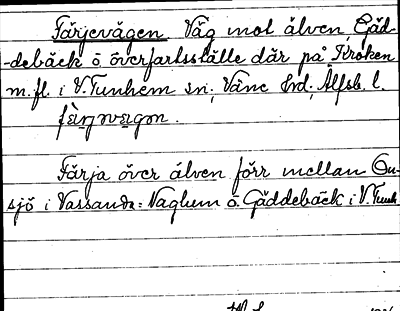 Färjevägen. Väg mot älven, Gäd-
debäck o. överfartsställe där på Kroken
m.fl. i V. Tunhem sn; Väne hd, Älfsb. l.
Färja över älven förr mellan On-
sjö i Vassända-Naglum o. Gäddebäck i V. Tunh.